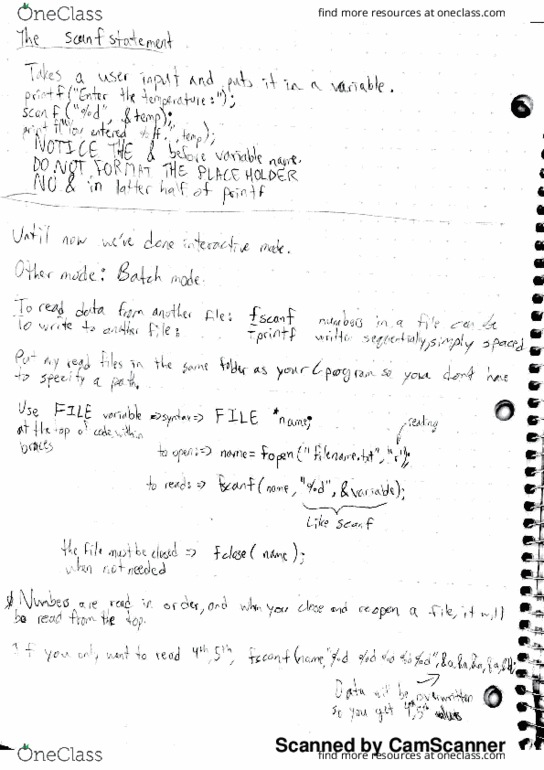 OneClass
find more resources at oneclass.com
The scanf statement
Takes a user input and puts it in a variable.
printf("Enter the temperature:");
scanf("%d", &temp);
printf("You entered %f", temp);
NOTICE THE & before variable name.
DO NOT FORMAT THE PLACE HOLDER
NO & in latter half of printf
Until now we've done interactive mode.
Other mode: Batch mode.
To read data from another file: fscanf numbers in a file can be
To write to another file: fprintf written sequentially, simply spaced
Put my read files in the same folder as your C program so you don't have
to specify a path.
Use FILE variable => syntax => FILE *name;
at the top of code within
braces
reading
to open: => name = fopen("filename.txt", "r");
to read: => fscanf(name, "%d", &variable);
Like scanf
the file must be closed => fclose(name);
when not needed
Numbers are read in order, and when you close and reopen a file, it will
be read from the top.
If you only want to read 4th, 5th, fscanf(name, "%d %d %d %d %d", &a, &a, &a, &a, &b);
Data will be overwritten
so you get 4th, 5th values
Scanned by CamScanner
OneClass
find more resources at oneclass.com